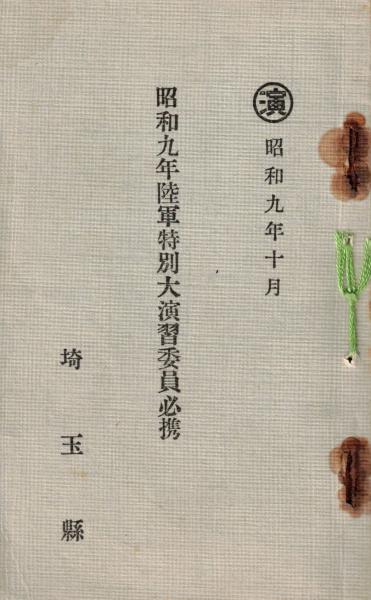 ㊮昭和九年十月
昭和九年陸軍特別大演習委員必携
埼玉縣